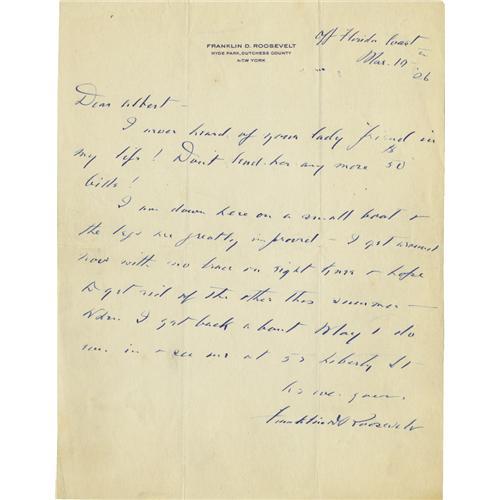 FRANKLIN D. ROOSEVELT
HYDE PARK, DUTCHESS COUNTY
NEW YORK
Off Florida Coast
Mar. 19 '26
Dear Albert -
I never heard of your lady friend in
my life! Don't lend her any more $50
bills!
I am down here on a small boat &
the legs are greatly improved - I get around
now with no brace on right knee & hope
to get rid of the other this summer -
When I get back about May 1 do
run in & see me at 52 Liberty St -
As ever yours
Franklin D Roosevelt